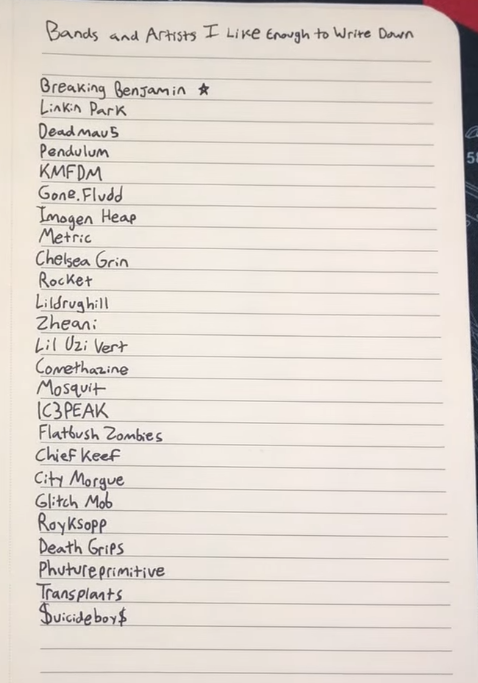 Bands and Artists I Like Enough to Write Down
Breaking Benjamin ★
Linkin Park
Deadmau5
Pendulum
KMFDM
Gone.Fludd
Imogen Heap
Metric
Chelsea Grin
Rocket
Lildrughill
Zheani
Lil Uzi Vert
Comethazine
Mosquit
IC3PEAK
Flatbush Zombies
Chief Keef
City Morgue
Glitch Mob
Royksopp
Death Grips
Phutureprimitive
Transplants
$uicideboy$
58